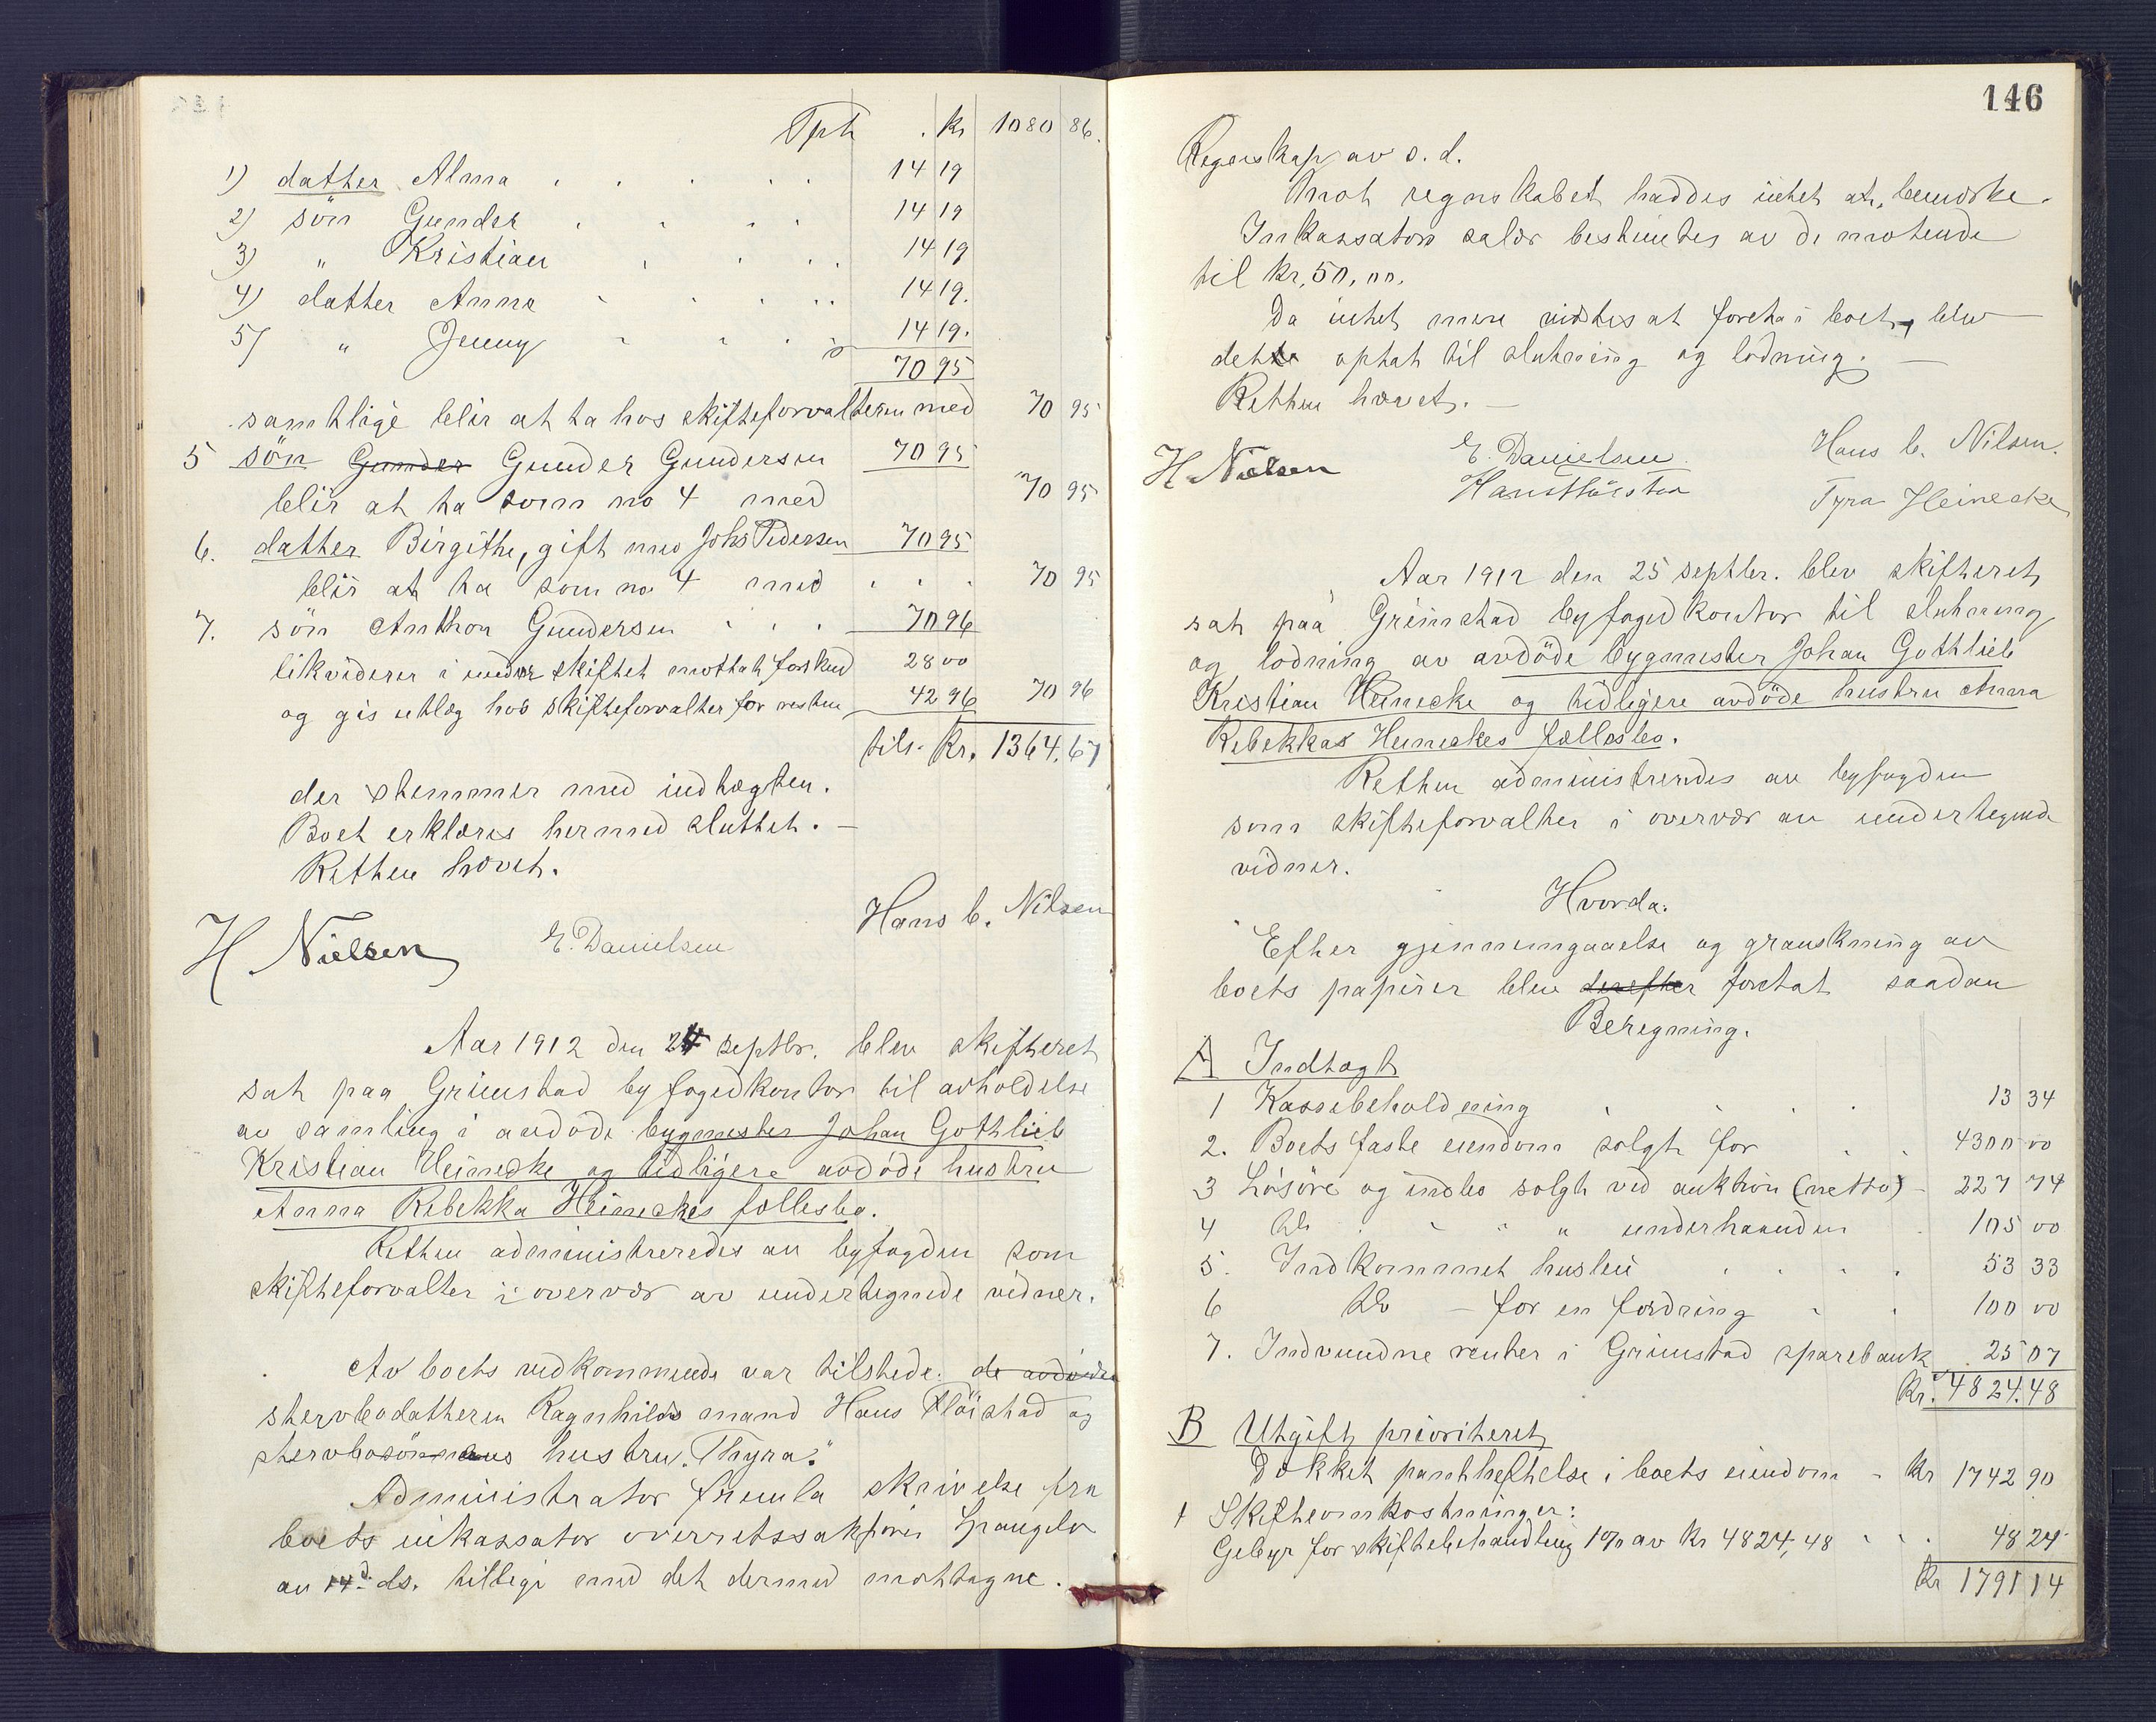 Tpt . Kr 1080 86.
1) datter Alma . . . . . 14 19
2) sön Gunder . . . . 14 19
3) „ Kristian . . . . 14 19
4) datter Anna . . . . 14 19.
5) „ Jenny . . . 14 19.
70 95
samtlige blir at ta hos skifteforvalteren med 70 95
5 sön Gunder Gunder Gundersen 70 95
blir at ta som no 4 med 70 95
6. datter Birgithe, gift med Johs Pedersen 70 95
blir at ta som no 4 med . . . 70 95
7. sön Anthon Gundersen . . . 70 96
likviderer i under skiftet mottat forskud 28 00
og gis utlæg hos skifteforvalter for resten 42 96 70 96
tils. Kr. 1364.67
der stemmer med indtægten.
Boet erklæres hermed sluttet. –
Retten hævet.
H Nielsen E. Danielsen Hans C. Nilsen
Aar 1912 den 24 septbr. blev skifteret
sat paa Grimstad byfogedkontor til avholdelse
av samling i avdöde bygmester Johan Gothlieb
Kristian Heinecke og tidligere avdöde hustru
Anna Rebekka Heineckes fællesbo.
Retten administreredes av byfogden som
skifteforvalter i overvær av undertegnede vidner.
Av boets vedkommende var tilstede: de avdödes
stervbodatteren Ragnhilds mand Hans Flöistad og
stervbosönnens hustru „Thyra“
Administrator fremla skrivelse fra
boets inkassator overretssakförer Spangelo
av 14d ds. tillegi med det dermed mottagne.
146
Regnskap av s. d.
Mot regnskabet haddes intet at bemærke.
Inkassators salær bestemtes av de mötende
til kr. 50,00.
Da intet mere vistes at foreta i boet, blev
dette optat til slutning og lodning. –
Retten hævet. –
H Nielsen E. Danielsen Hans C. Nilsen.
Hans Flöistad Tyra Heinecke
Aar 1912 den 25 septbr. blev skifteret
sat paa Grimstad byfogedkontor til slutning
og lodning av avdöde bygmester Johan Gothlieb
Kristian Heinecke og tidligere avdöde hustru Anna
Rebekkas Heineckes fællesbo.
Retten administreredes av byfogden
som skifteforvalter i overvær av undertegnede
vidner.
Hvorda:
Efter gjennemgaaelse og granskning av
boets papirer blev derefter foretat saadan
Beregning.
A Indtægt
1 Kassebeholdning . . . . 13 34
2. Boets faste eiendom solgt for . . 4300 00
3 Lösöre og indbo solgt ved auktion (netto) – 227 74
4 Do . „ „ „ underhaanden . 105 00
5. Indkommet husleie . . . . 53 33
6 Do – for en fordring . . 100 00
7. Indvundne renter i Grimstad sparebank 25 07
Kr. 4824.48
B Utgift prioritert
Dækket pantheftelse i boets eiendom – Kr 1742 90
1 Skifteomkostninger:
Gebyr for skiftebehandling 1% av Kr 4824,48 . . . 48 24
Kr 1791 14